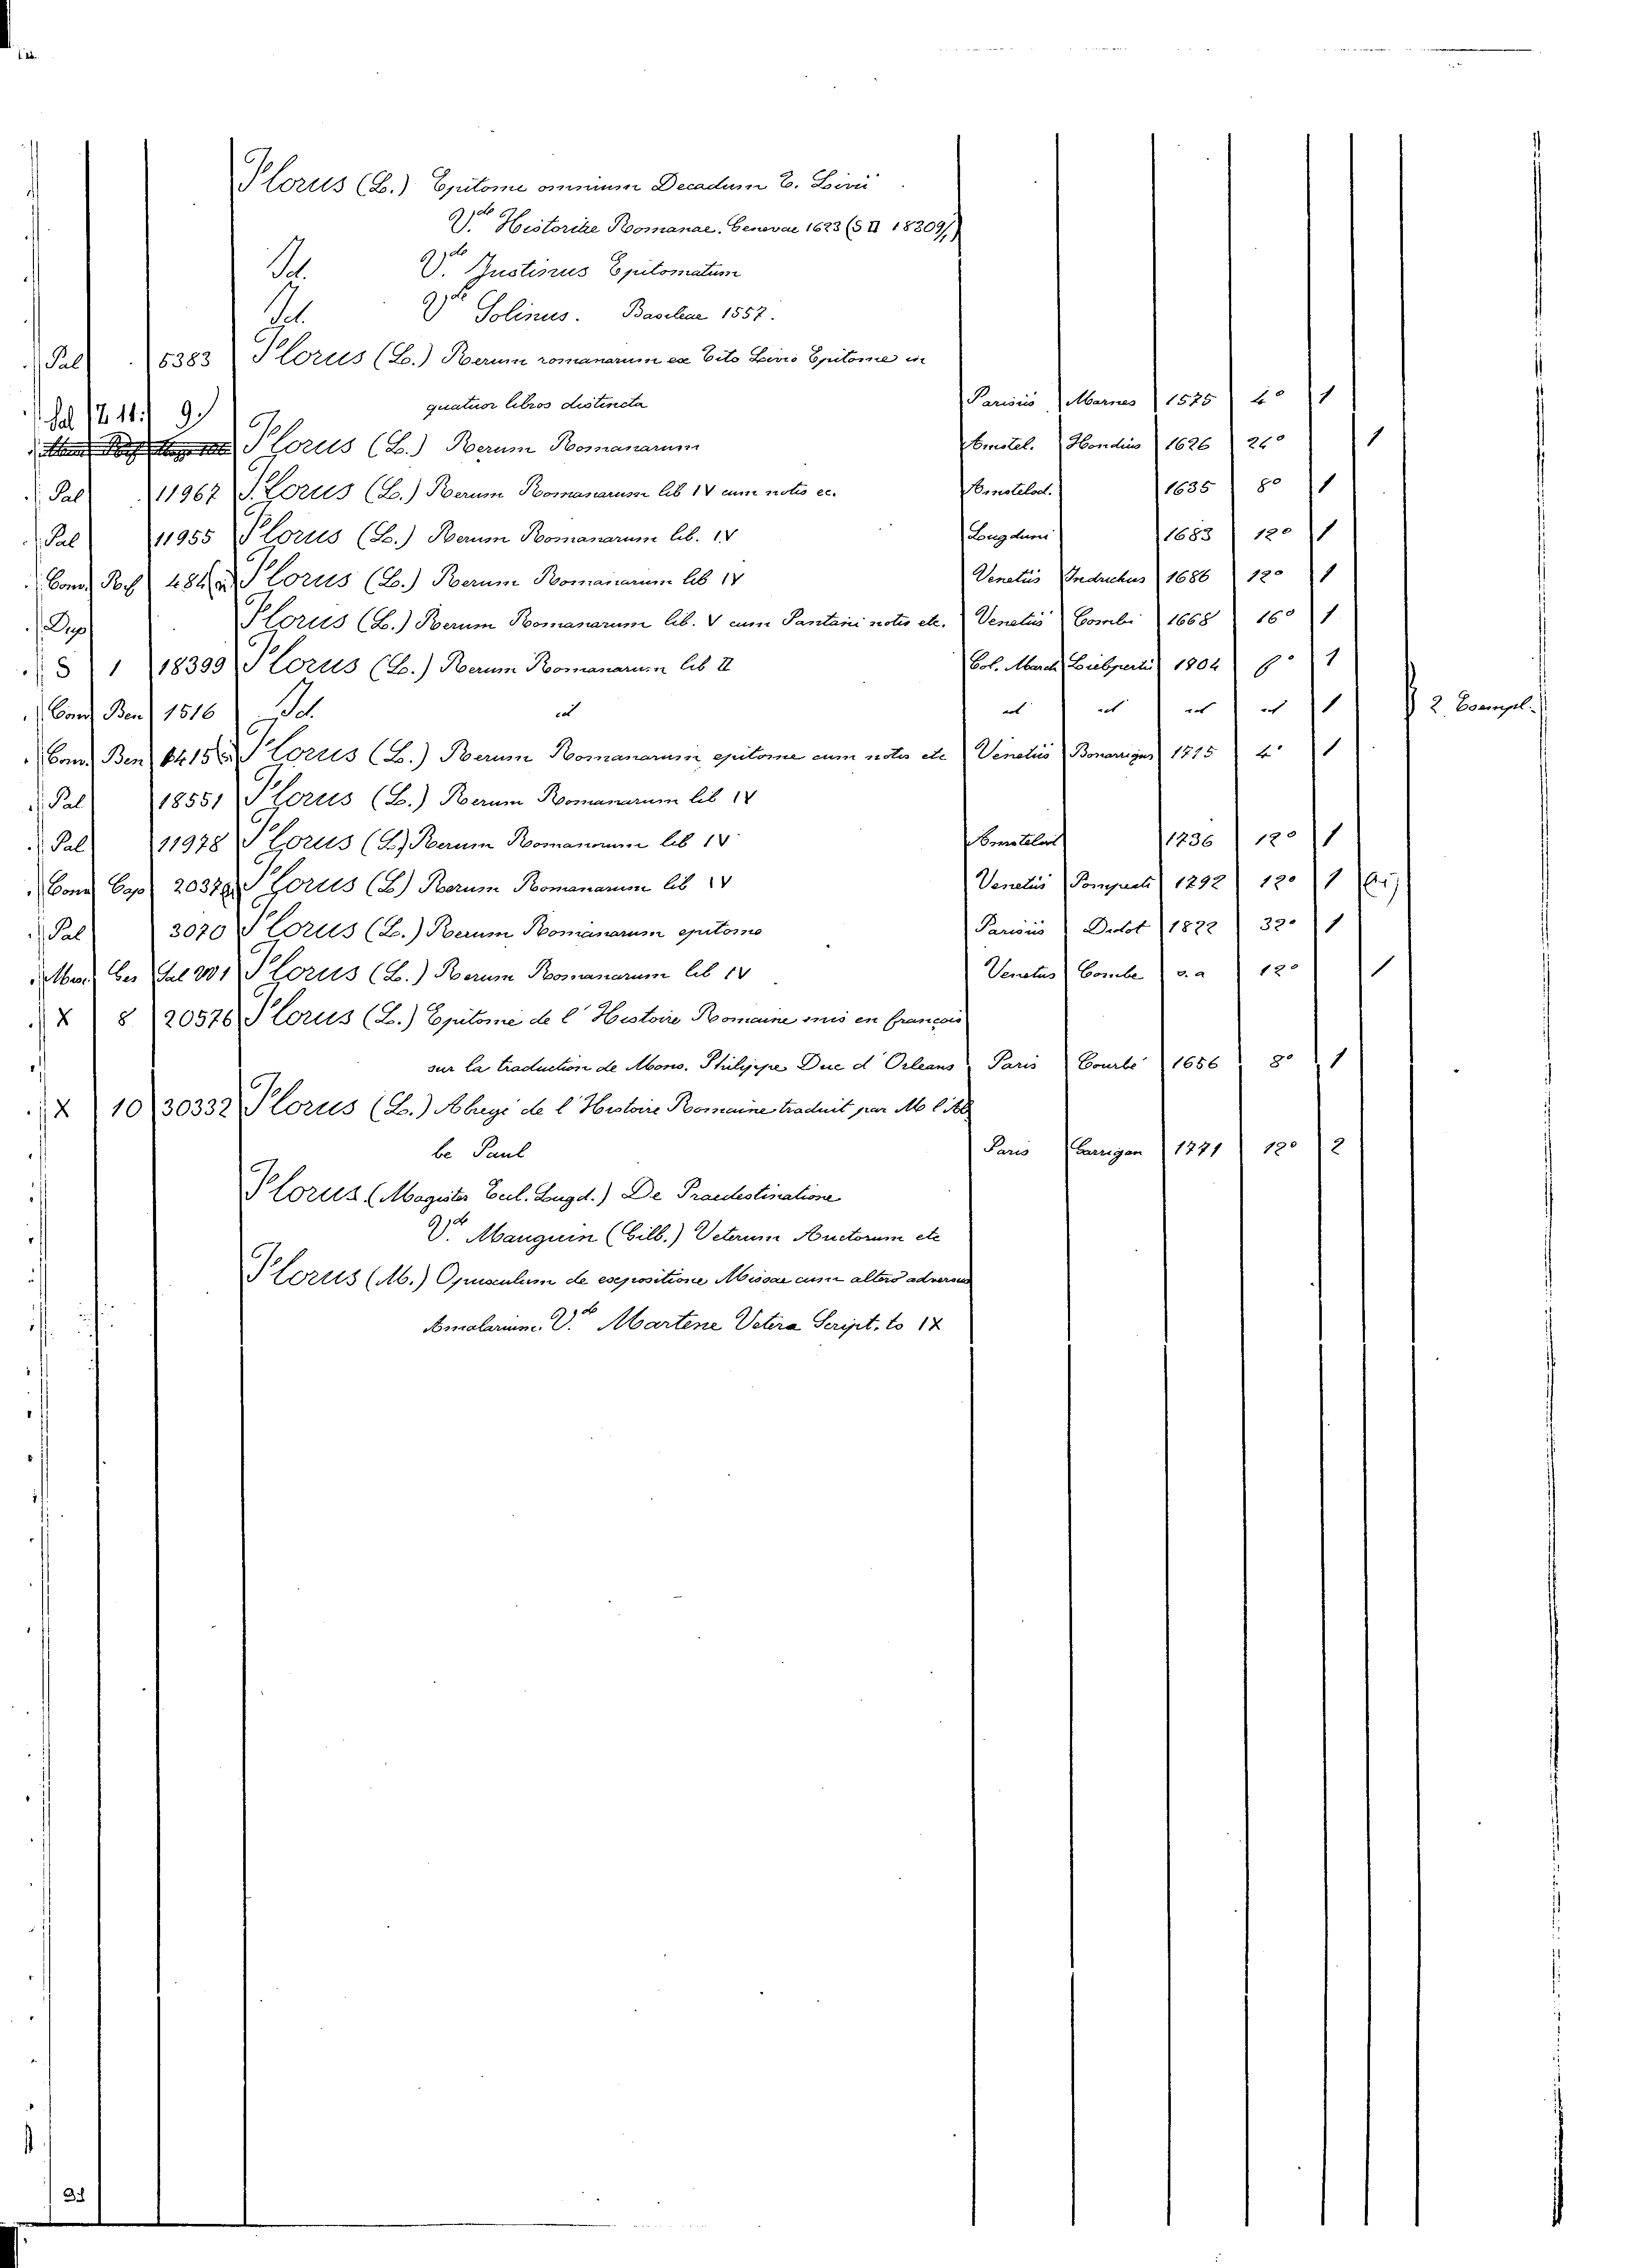 Florus (L.) Epitome omnium Decadum T. Livii
V.de Historiae Romanae. Genevae 1623 (S II 18209/1)
Id. V.de Justinus Epitomatum
Id. V.de Solinus. Basileae 1557.
Pal 5383 Florus (L.) Rerum romanarum ex Tito Livio Epitome in
quatuor libros distincta Parisiis Marnes 1575 4° 1
Sal Z 11. 9. Florus (L.) Rerum Romanarum Amstel. Hondius 1626 24° 1
Pal 11967 Florus (L.) Rerum Romanarum lib IV cum notis ec. Amstelod. 1635 8° 1
Pal 11955 Florus (L.) Rerum Romanarum lib. IV Lugduni 1683 12° 1
Com. Rof 484 a Florus (L.) Rerum Romanarum lib IV Venetiis Indrichus 1686 12° 1
Dup Florus (L.) Rerum Romanarum lib. V cum Pantani notis etc. Venetiis Combi 1668 16° 1
S 1 18399 Florus (L.) Rerum Romanarum lib II Col. March Liebperti 1704 6° 1
Com Ben 1516 Id. id id id id id 1 2 Esempl.
Com. Ben 6415 Florus (L.) Rerum Romanarum, epitome cum notis etc Venetiis Bonarrigus 1715 4° 1
Pal 18551 Florus (L.) Rerum Romanarum lib IV
Pal 11978 Florus (L.) Rerum Romanorum lib IV Amstelod 1736 12° 1
Com Cap 2037 Florus (L) Rerum Romanarum lib IV Venetiis Pompeati 1792 12° 1
Pal 3070 Florus (L.) Rerum Romanarum epitome Parisiis Didot 1822 32° 1
Mus. Ces Sal 201 Florus (L.) Rerum Romanarum lib IV Venetus Combe s. a 12° 1
X 8 20576 Florus (L.) Epitome de l' Histoire Romaine mis en françois
sur la traduction de Mons. Philippe Duc d' Orleans Paris Courbé 1656 8° 1
X 10 30332 Florus (L.) Abregé de l' Histoire Romaine traduit par M l'Ab
be Paul Paris Barrigan 1771 12° 2
Florus (Magister Eccl. Lugd.) De Praedestinatione
V.de Mauguin (Gilb.) Veterum Auctorum etc
Florus (M.) Opusculum de expositione Missae cum altero adversus
Amalarium. V.de Martene Vetera Script. to IX